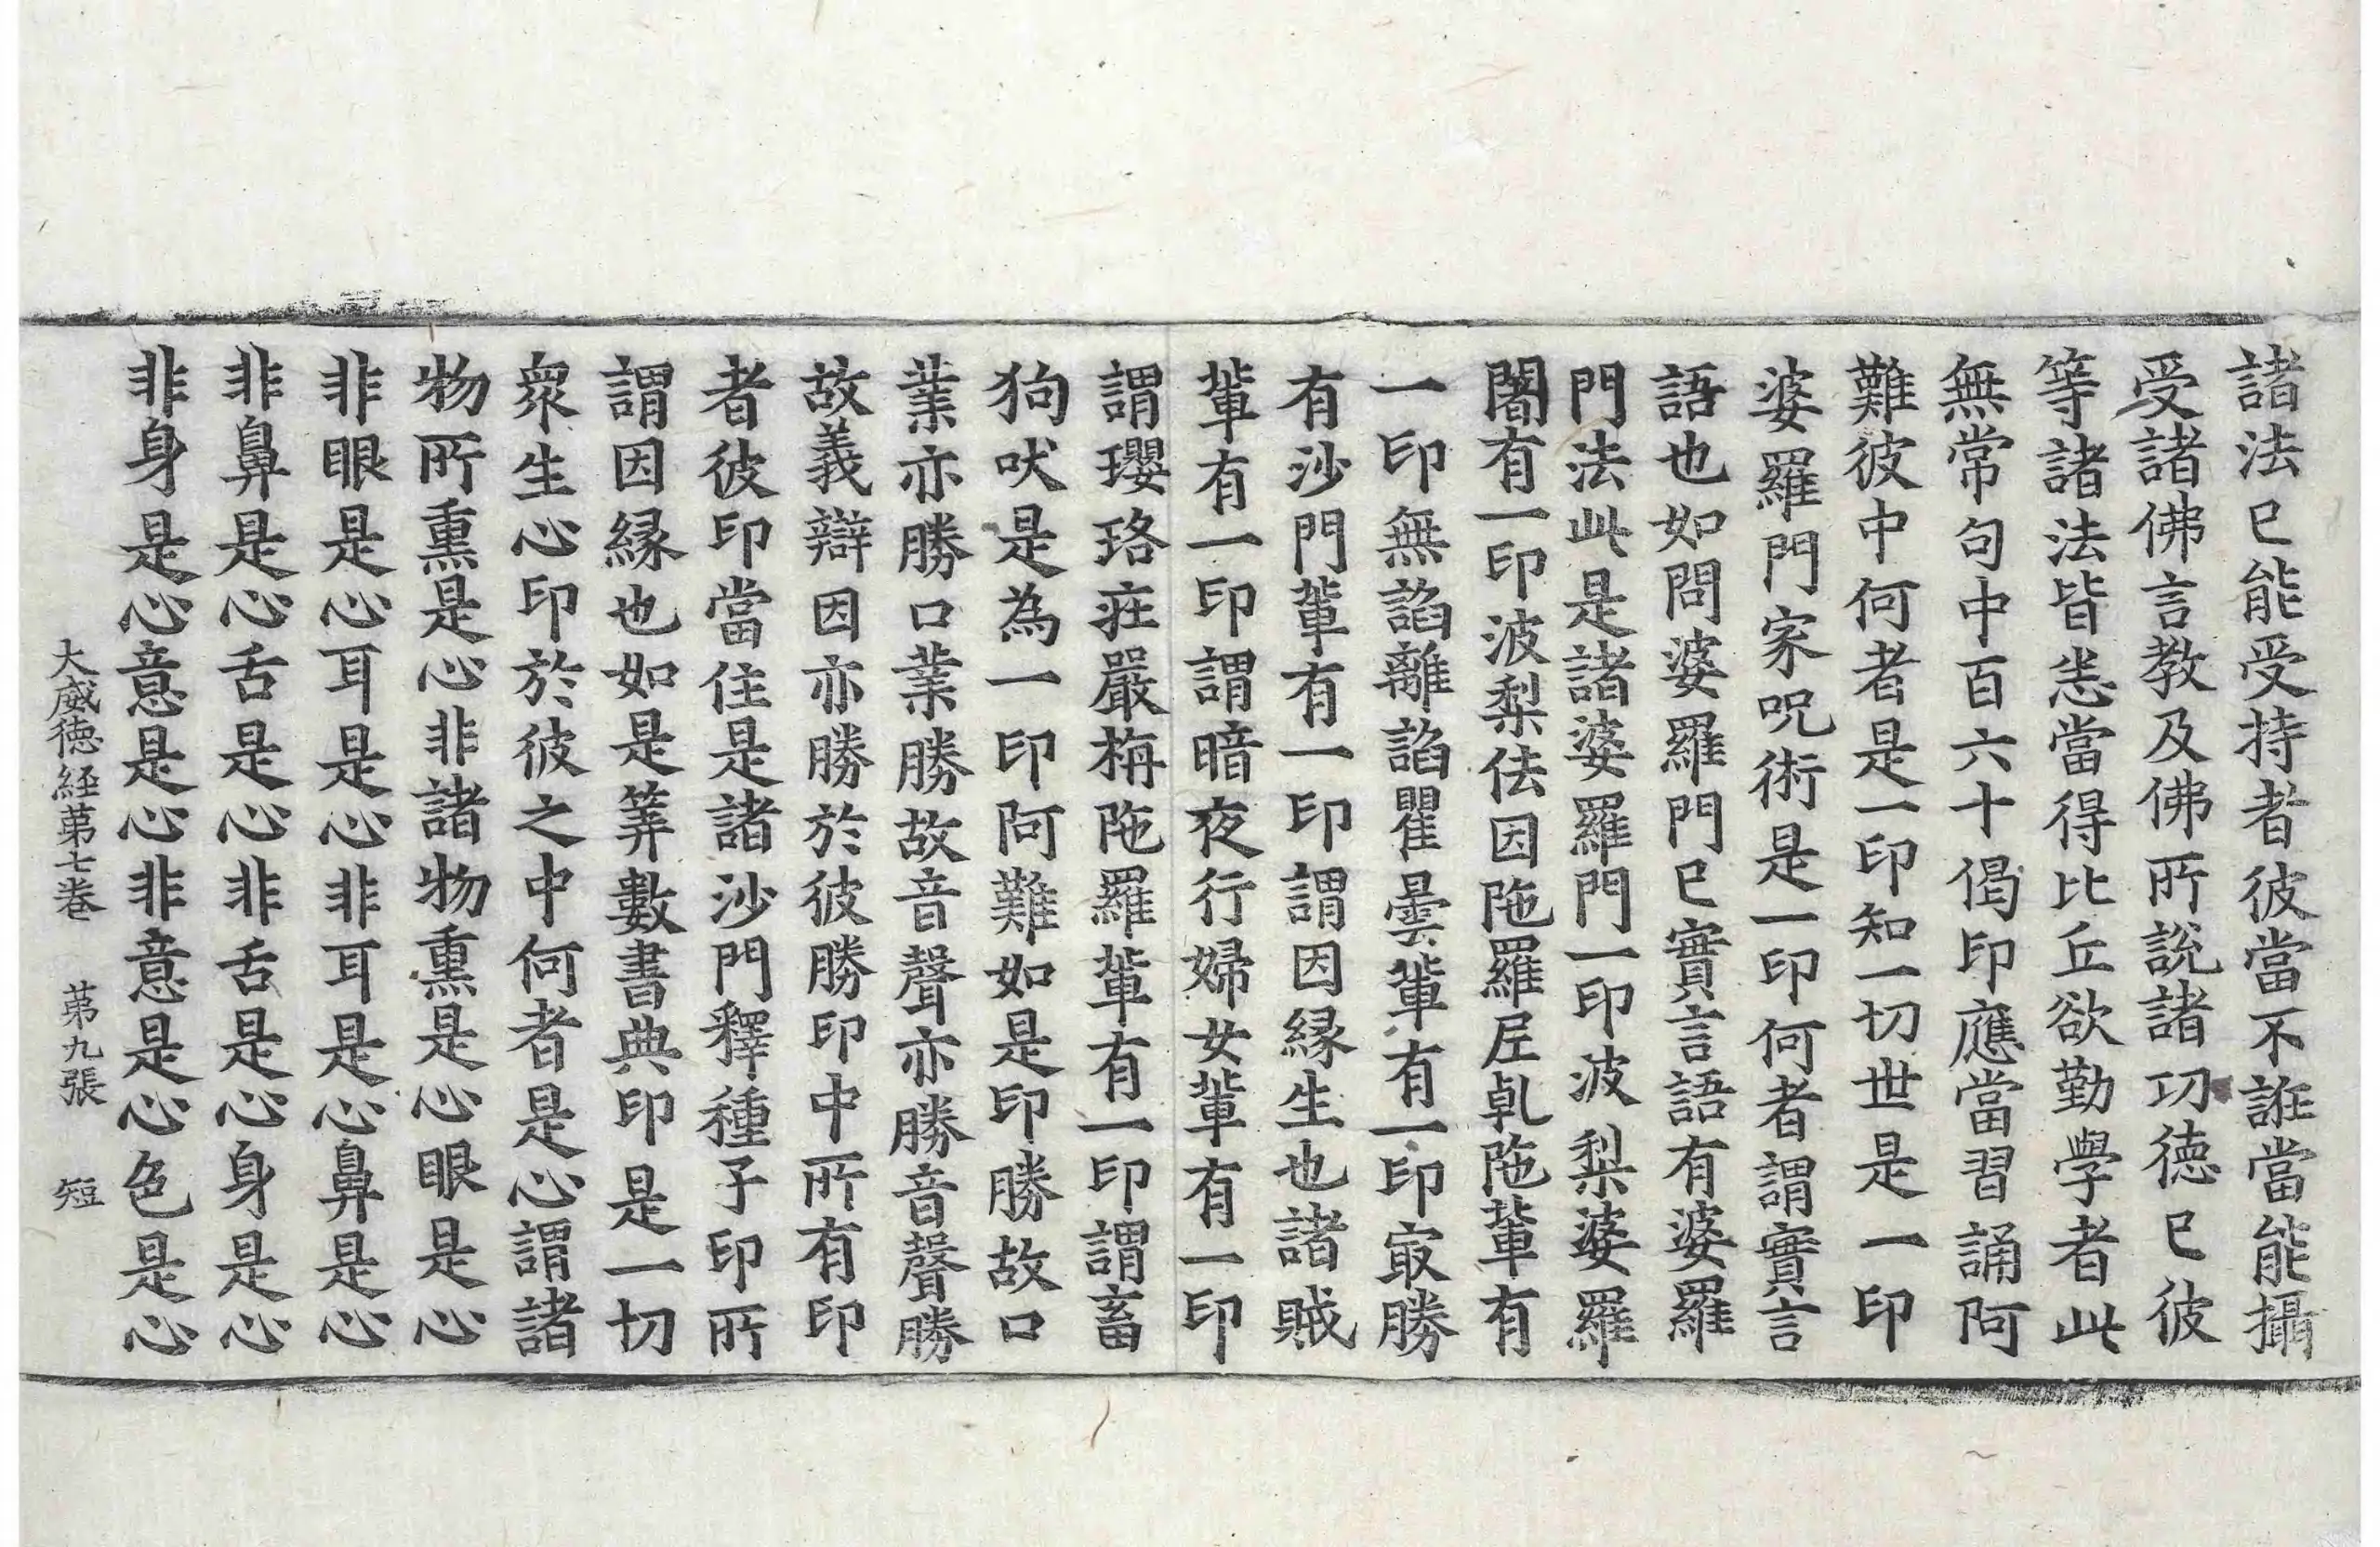 諸法已能受持者彼當不誑當能攝
受諸佛言教及佛所說諸功德已彼
等諸法皆悉當得比丘欲勤學者此
無常句中百六十偈印應當習誦阿
難彼中何者是一印知一切世是一印
婆羅門家呪術是一印何者謂實言
語也如問婆羅門已實言語有婆羅
門法此是諸婆羅門一印波梨婆羅
闍有一印波梨佉因陁羅𡰱乹陁軰有
一印無諂離諂瞿曇軰有一印㝡勝
有沙門軰有一印謂因緣生也諸賊
軰有一印謂暗夜行婦女軰有一印
謂瓔珞莊嚴栴陁羅軰有一印謂畜
狗吠是為一印阿難如是印勝故口
業亦勝口業勝故音聲亦勝音聲勝
故義辯因亦勝於彼勝印中所有印
者彼印當住是諸沙門釋種子印所
謂因緣也如是筭數書典印是一切
衆生心印於彼之中何者是心謂諸
物所熏是心非諸物熏是心眼是心
非眼是心耳是心非耳是心鼻是心
非鼻是心舌是心非舌是心身是心
非身是心意是心非意是心色是心
大威德経第七卷 第九張 短